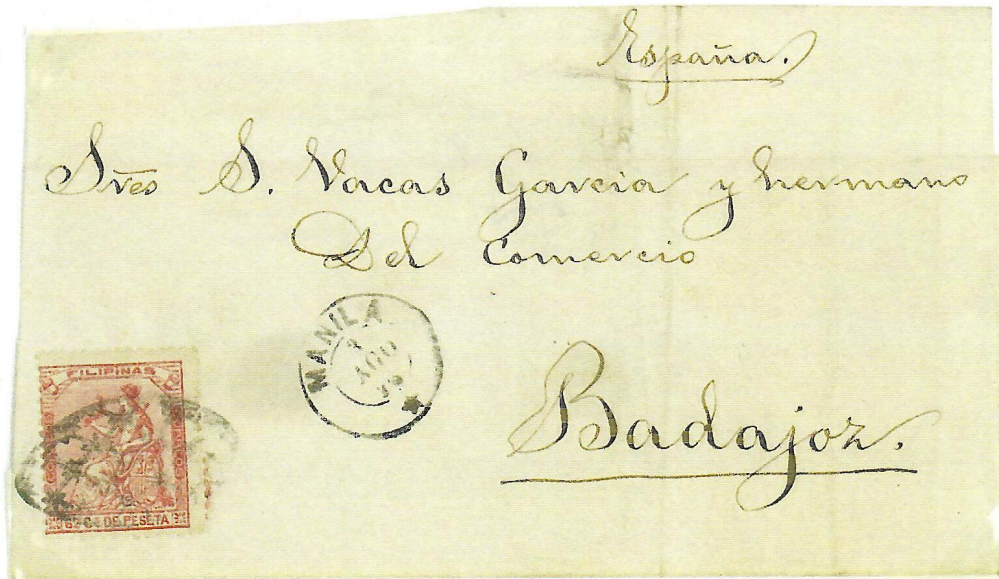 España.
Sres S. Vacas Garcia y hermano
Del Comercio
MANILA
AGO
Badajoz.
FILIPINAS
62 Cs DE PESETA